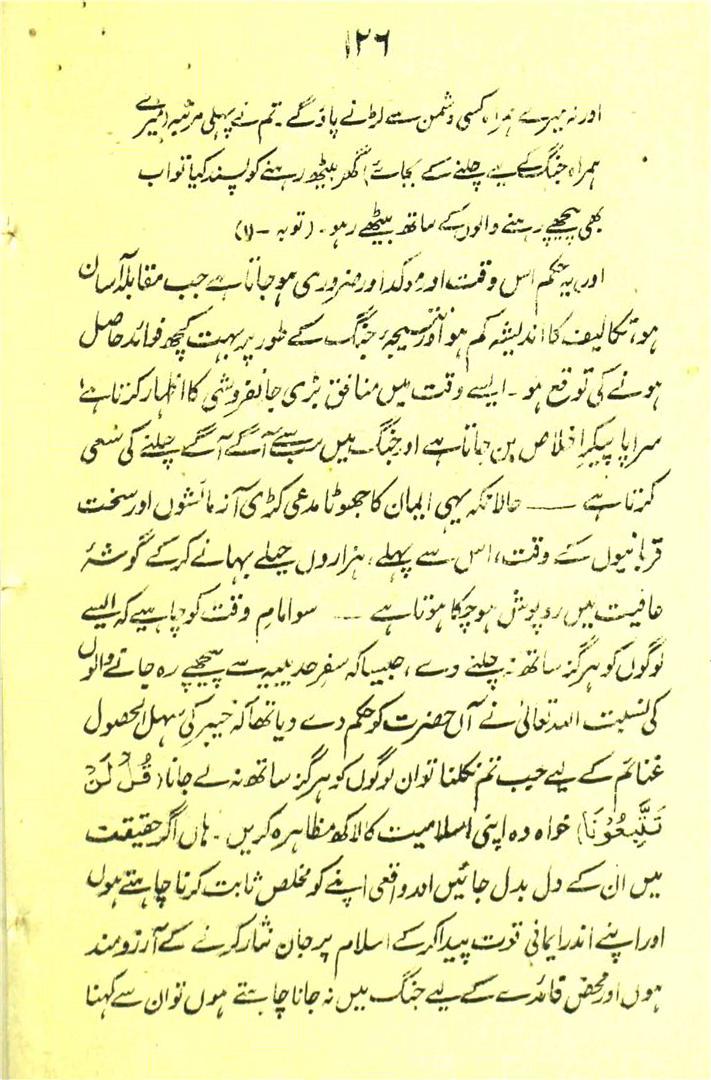 ۱۲۶
اور نہ میرے ہمراہ کسی دشمن سے لڑنے پاؤ گے۔ تم نے پہلی مرتبہ (میرے
ہمراہ جنگ کے لیے چلنے کے بجائے) گھر بیٹھ رہنے کو پسند کیا تو اب
بھی پیچھے رہنے والوں کے ساتھ بیٹھے رہو۔ (توبہ - ۱۱)
اور یہ حکم اس وقت اور مؤکد اور ضروری ہو جاتا ہے جب مقابلہ آسان
ہو، تکالیف کا اندیشہ کم ہو اور نتیجۂ جنگ کے طور پر بہت کچھ فوائد حاصل
ہونے کی توقع ہو۔ ایسے وقت میں منافق بڑی جانفروشی کا اظہار کرتا ہے،
سراپا پیکرِ اخلاص بن جاتا ہے اور جنگ میں سب سے آگے آگے چلنے کی سعی
کرتا ہے ـــــ حالانکہ یہی ایمان کا جھوٹا مدعی کڑی آزمائشوں اور سخت
قربانیوں کے وقت، اس سے پہلے، ہزاروں حیلے بہانے کر کے گوشۂ
عافیت میں روپوش ہو چکا ہوتا ہے ـــــ سو امامِ وقت کو چاہیے کہ ایسے
لوگوں کو ہرگز ساتھ نہ چلنے دے، جیسا کہ سفر حدیبیہ سے پیچھے رہ جانے والوں
کی نسبت اللہ تعالیٰ نے آں حضرت کو حکم دے دیا تھا کہ خیبر کی سہل الحصول
غنائم کے لیے جب تم نکلنا تو ان لوگوں کو ہرگز ساتھ نہ لے جانا (قُلْ لَنْ
تَتَّبِعُوْنَا) خواہ وہ اپنی اسلامیت کا لاکھ مظاہرہ کریں۔ ہاں اگر حقیقت
میں ان کے دل بدل جائیں اور واقعی اپنے کو مخلص ثابت کرنا چاہتے ہوں
اور اپنے اندر ایمانی قوت پیدا کر کے اسلام پر جان نثار کرنے کے آرزومند
ہوں اور محض فائدے کے لیے جنگ میں نہ جانا چاہتے ہوں تو ان سے کہنا